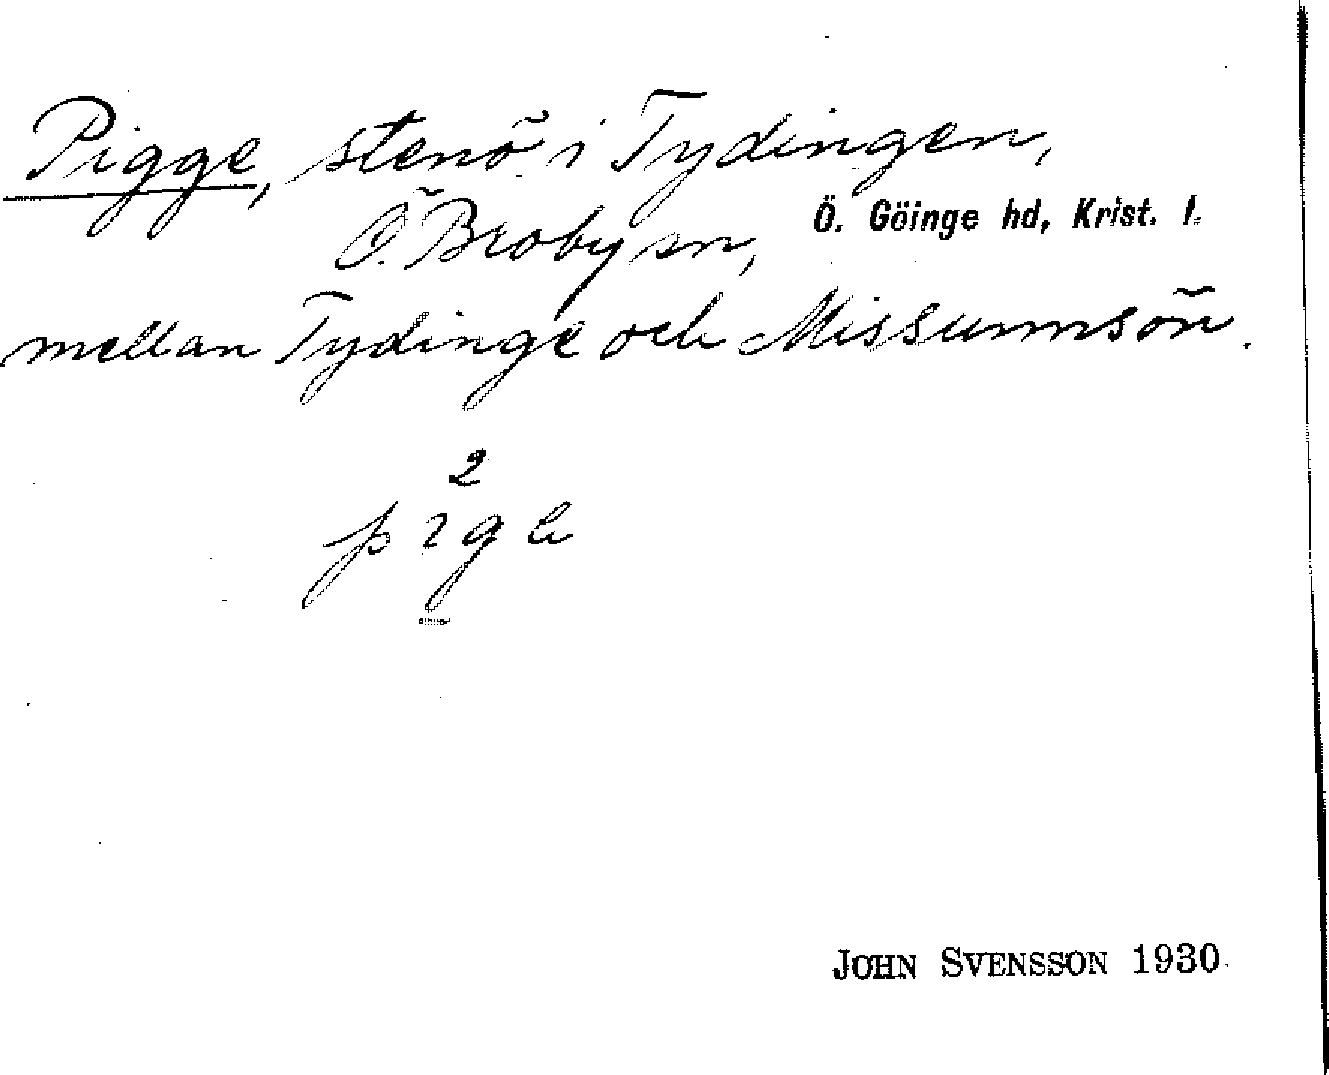 Pigge, stenö i Tydingen,
Ö. Broby sn, Ö. Göinge hd, Krist. l.
mellan Tydinge och Missumsön.
2
JOHN SVENSSON 1930